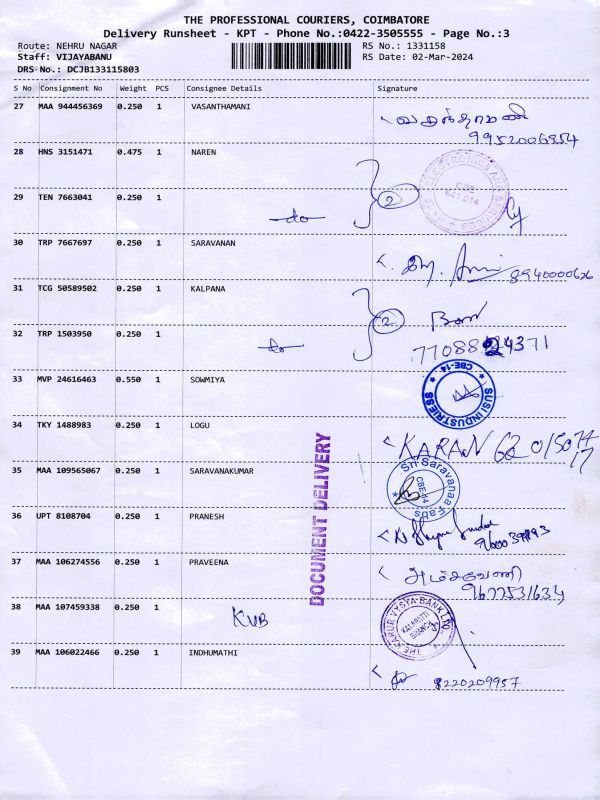 THE PROFESSIONAL COURIERS, COIMBATORE
Delivery Runsheet - KPT - Phone No.:0422-3505555 - Page No.:3
Route: NEHRU NAGAR RS No.: 1331158
Staff: VIJAYABANU RS Date: 02-Mar-2024
DRS No.: DCJB133115803
S No Consignment No Weight PCS Consignee Details Signature
27 MAA 944456369 0.250 1 VASANTHAMANI வசந்தாமணி
9952006854
28 HNS 3151471 0.475 1 NAREN
29 TEN 7663041 0.250 1 2
do
30 TRP 7667697 0.250 1 SARAVANAN
8940000626
31 TCG 50589502 0.250 1 KALPANA
2
32 TRP 1503950 0.250 1 do
33 MVP 24616463 0.550 1 SOWMIYA SUSI INDUSTRIES CBE-14
34 TKY 1488983 0.250 1 LOGU KARAN
35 MAA 109565067 0.250 1 SARAVANAKUMAR Sri Saravanaa Fabs CBE-14
36 UPT 8108704 0.250 1 PRANESH
37 MAA 106274556 0.250 1 PRAVEENA அம்சவேணி
9677531634
38 MAA 107459338 0.250 1 KVB THE KARUR VYSYA BANK LTD. KALAPATTI BRANCH
39 MAA 106022466 0.250 1 INDHUMATHI
8220209957
DOCUMENT DELIVERY